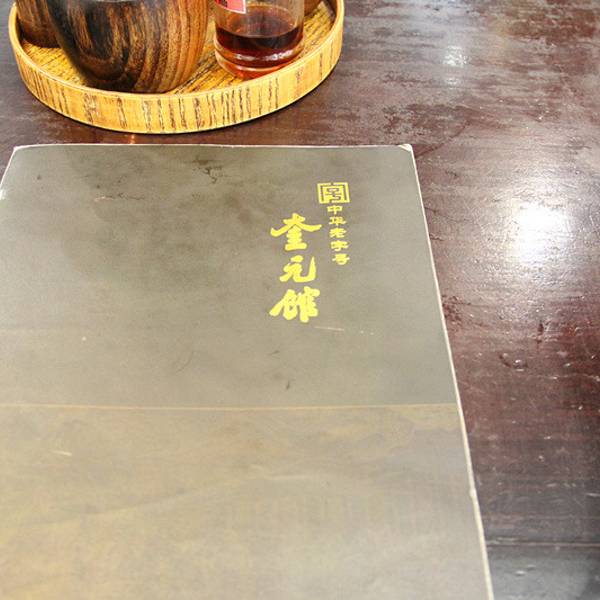 中华老字号
奎元馆